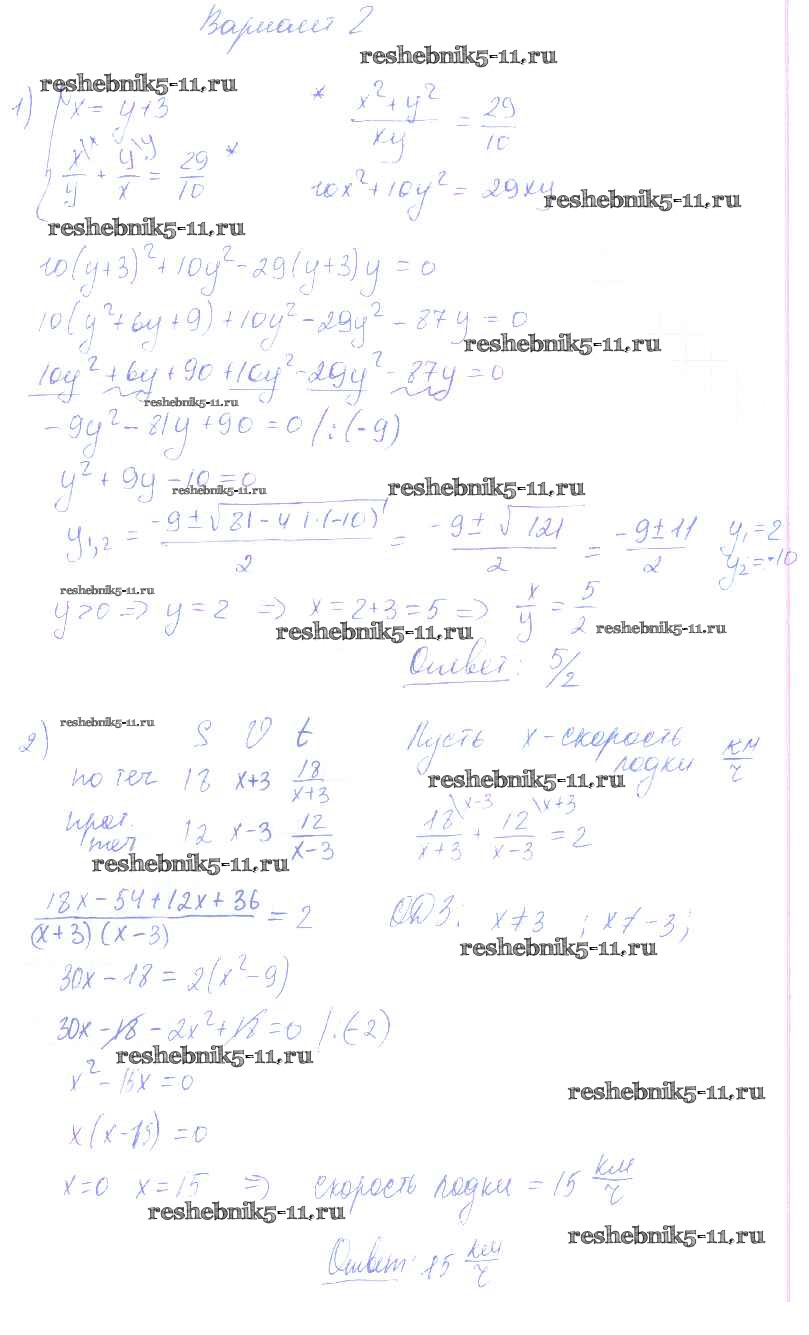 Вариант 2
reshebnik5-11.ru
reshebnik5-11.ru
1) { x = y+3
x/y \x + y/x \y = 29/10 *
* (x² + y²)/xy = 29/10
10x² + 10y² = 29xy
reshebnik5-11.ru
reshebnik5-11.ru
10(y+3)² + 10y² - 29(y+3)y = 0
10(y² + 6y + 9) + 10y² - 29y² - 87y = 0
reshebnik5-11.ru
10y² + 6y + 90 + 10y² - 29y² - 87y = 0
reshebnik5-11.ru
-9y² - 81y + 90 = 0 /:(-9)
y² + 9y - 10 = 0
reshebnik5-11.ru
reshebnik5-11.ru
y₁,₂ = (-9 ± √(81 - 4·1·(-10)))/2 = (-9 ± √121)/2 = (-9 ± 11)/2 y₁ = 2
y₂ = -10
reshebnik5-11.ru
y > 0 => y = 2 => x = 2+3 = 5 => x/y = 5/2
reshebnik5-11.ru
reshebnik5-11.ru
Ответ: 5/2
reshebnik5-11.ru
2) S V t
Пусть x - скорость лодки км/ч
по теч 18 x+3 18/(x+3)
reshebnik5-11.ru
прот. теч 12 x-3 12/(x-3)
18/(x+3) \x-3 + 12/(x-3) \x+3 = 2
reshebnik5-11.ru
(18x - 54 + 12x + 36)/((x+3)(x-3)) = 2
ОДЗ: x ≠ 3 ; x ≠ -3;
reshebnik5-11.ru
30x - 18 = 2(x² - 9)
30x - 18 - 2x² + 18 = 0 /:(-2)
reshebnik5-11.ru
x² - 15x = 0
reshebnik5-11.ru
x(x-15) = 0
x = 0 x = 15 => скорость лодки = 15 км/ч
reshebnik5-11.ru
reshebnik5-11.ru
Ответ: 15 км/ч